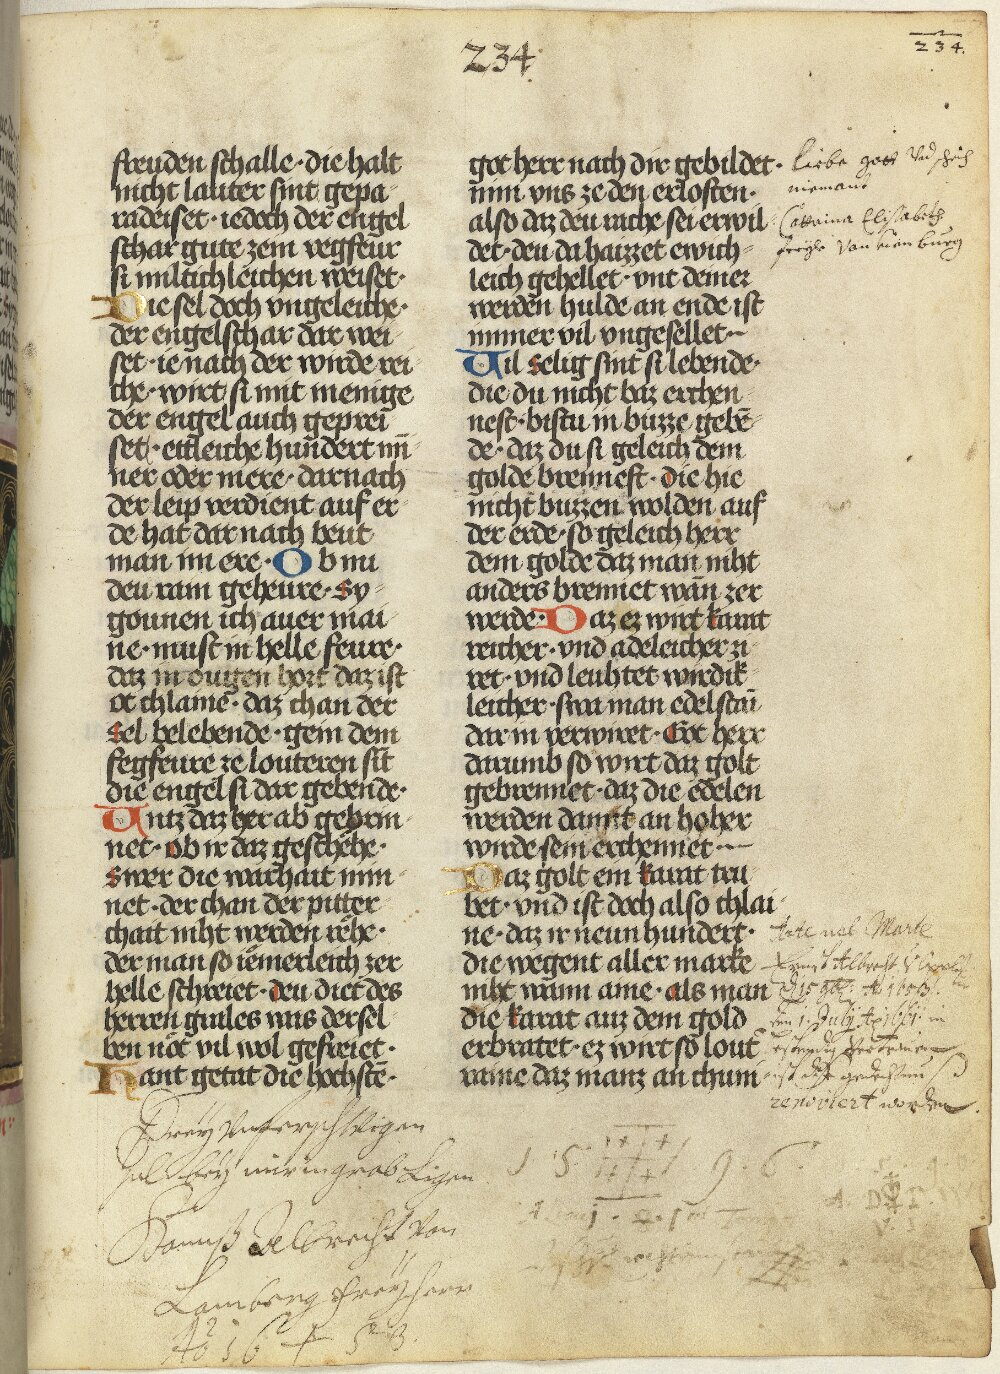 234.
234.
freuden schalle · die halt
nicht lauter sint gepa
radeiset · iedoch der engel
schar gute zem vegfeur
si miltichleichen weiset ·
Die sel doch vngeleiche ·
der engelschar dar wei
set · ie nach der wirde rei
che · wirt si mit menige
der engel auch geprei
set · ettleiche hundert mī
ner oder mere · dar nach
der leip verdient auf er
de hat dar nach beut
man im ere · Ob nu
deu ram geheure · sy
gounen ich auer mai
ne · must in helle feure ·
daz in ougen hort daz ist
ot chlaine · daz chan der
sel belebende · gein dem
fegfeure ze louteren sit
die engel si dar gebende ·
Vntz daz her ab gebrin
net · ob ir daz geschehe ·
swer die warhait min
net · der chan der pitter
chait niht werden rehe ·
der man so iemerleich zer
helle schreiet · deu diet des
herren gutes uns dersel
ben not vil wol gefreiet ·
Hant getat die hochstē ·
got herr nach dir gebildet ·
nim vns ze den erlosten ·
also daz deu rache sei erwil
det · deu da haizzet ewich
leich gehellet · vnt deiner
werden hulde an ende ist
immer vil vngesellet ·
Vil selig sint si lebende ·
die du nicht baz erchen
nest · bistu in buzze gebē
de · daz du si geleich dem
golde brennest · die hie
nicht buzzen wolden auf
der erde · so geleich herr
dem golde daz man niht
anders brennet wan zer
werde · Daz ez wirt karat
reicher · vnd adeleicher zi
ret · vnd leuhtet wirdik
leicher · swa man edel stai
dar in verwirret · Got herr
darumb so wirt daz golt
gebrennet · daz die edelen
werden damit an hoher
wirde sein erchennet ·
Daz golt ein karat tru
bet · vnd ist doch also chlai
ne · daz ir neun hundert ·
die wegent aller marke
niht wann aine · als man
die karat auz dem gold
erbratet · ez wirt so lout
raine daz manz an chum
liebe gott Vnd
niemant
Cattrina Elisabeth
Arte uel Marte
Albrecht
renoviert worden
Drey
halt bey mir in grab ligen
Albrecht Von
Lamberg freyherr
Aō 16 + 53.
1 5 9 6